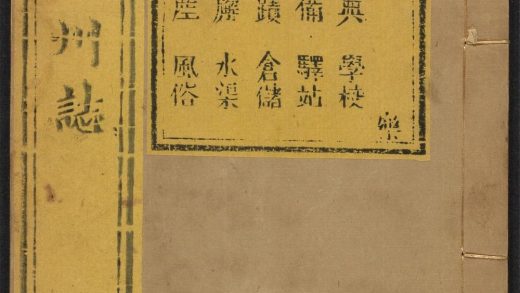 樂
典 學校
備 驛站
蹟 倉儲
廨 水渠
産 風俗
州誌